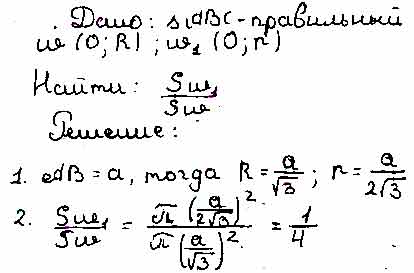 Дано: △ABC - правильный
ω (O; R); ω₁ (O; r)
Найти: Sω₁/Sω
Решение:
1. AB = a, тогда R = a/√3; r = a/2√3
2. Sω₁/Sω = π (a/2√3)² / π (a/√3)² = 1/4